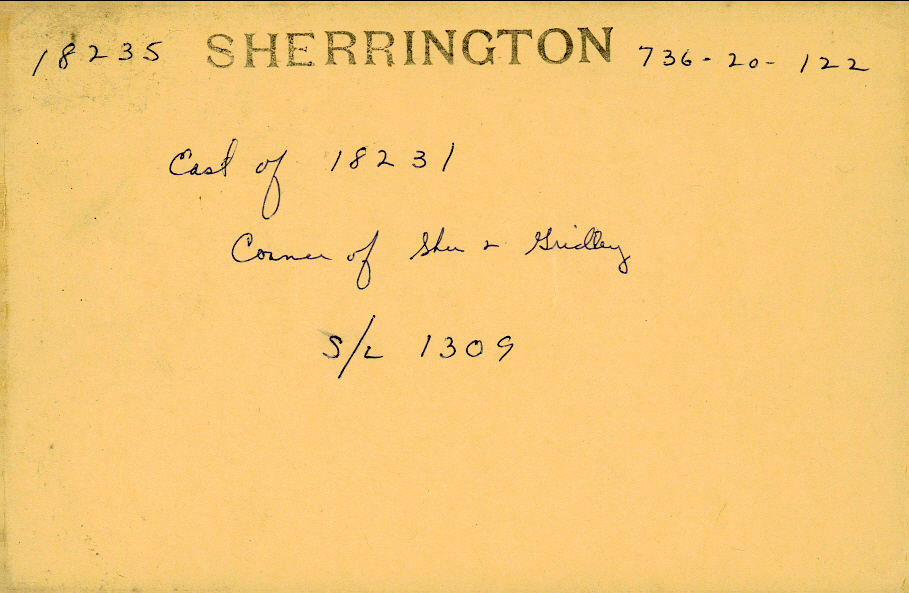 18235 SHERRINGTON 736-20-122
East of 18231
Corner of Sher & Gridley
S/L 1309